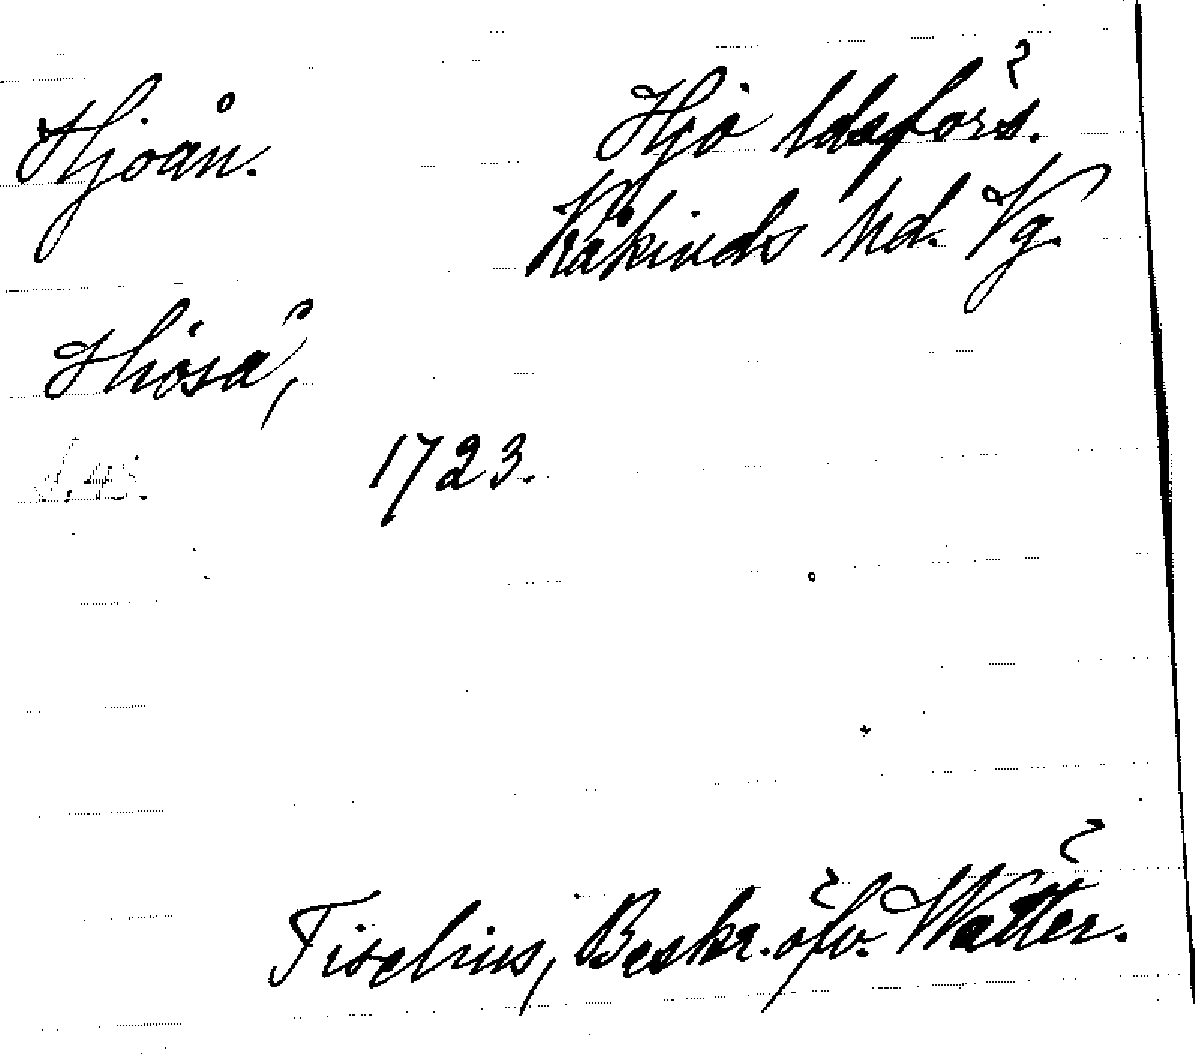 Hjoån.
Hjo ldsförs.
Kåkinds hd. Vg.
Hiöså,
S. 45.
1723.
Tiselius, Beskr. öfv. Wätter.